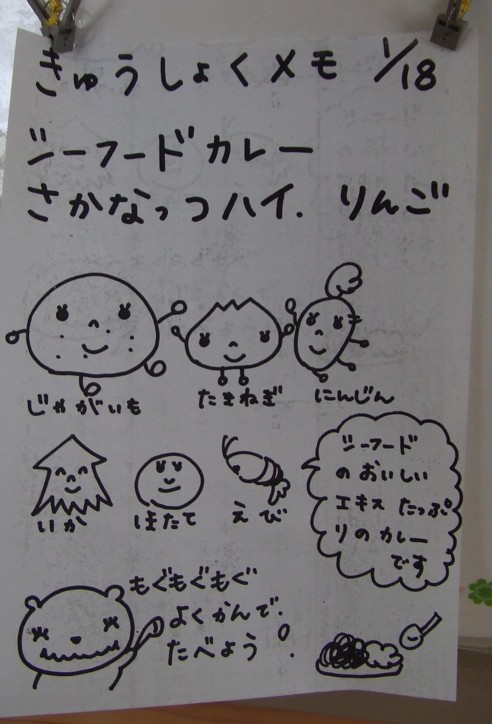 きゅうしょくメモ 1/18
シーフードカレー
さかなっつハイ. りんご
じゃがいも たまねぎ にんじん
いか ほたて えび
シーフード
のおいしい
エキスたっぷ
りのカレー
です
もぐもぐもぐ
よくかんで.
たべよう!